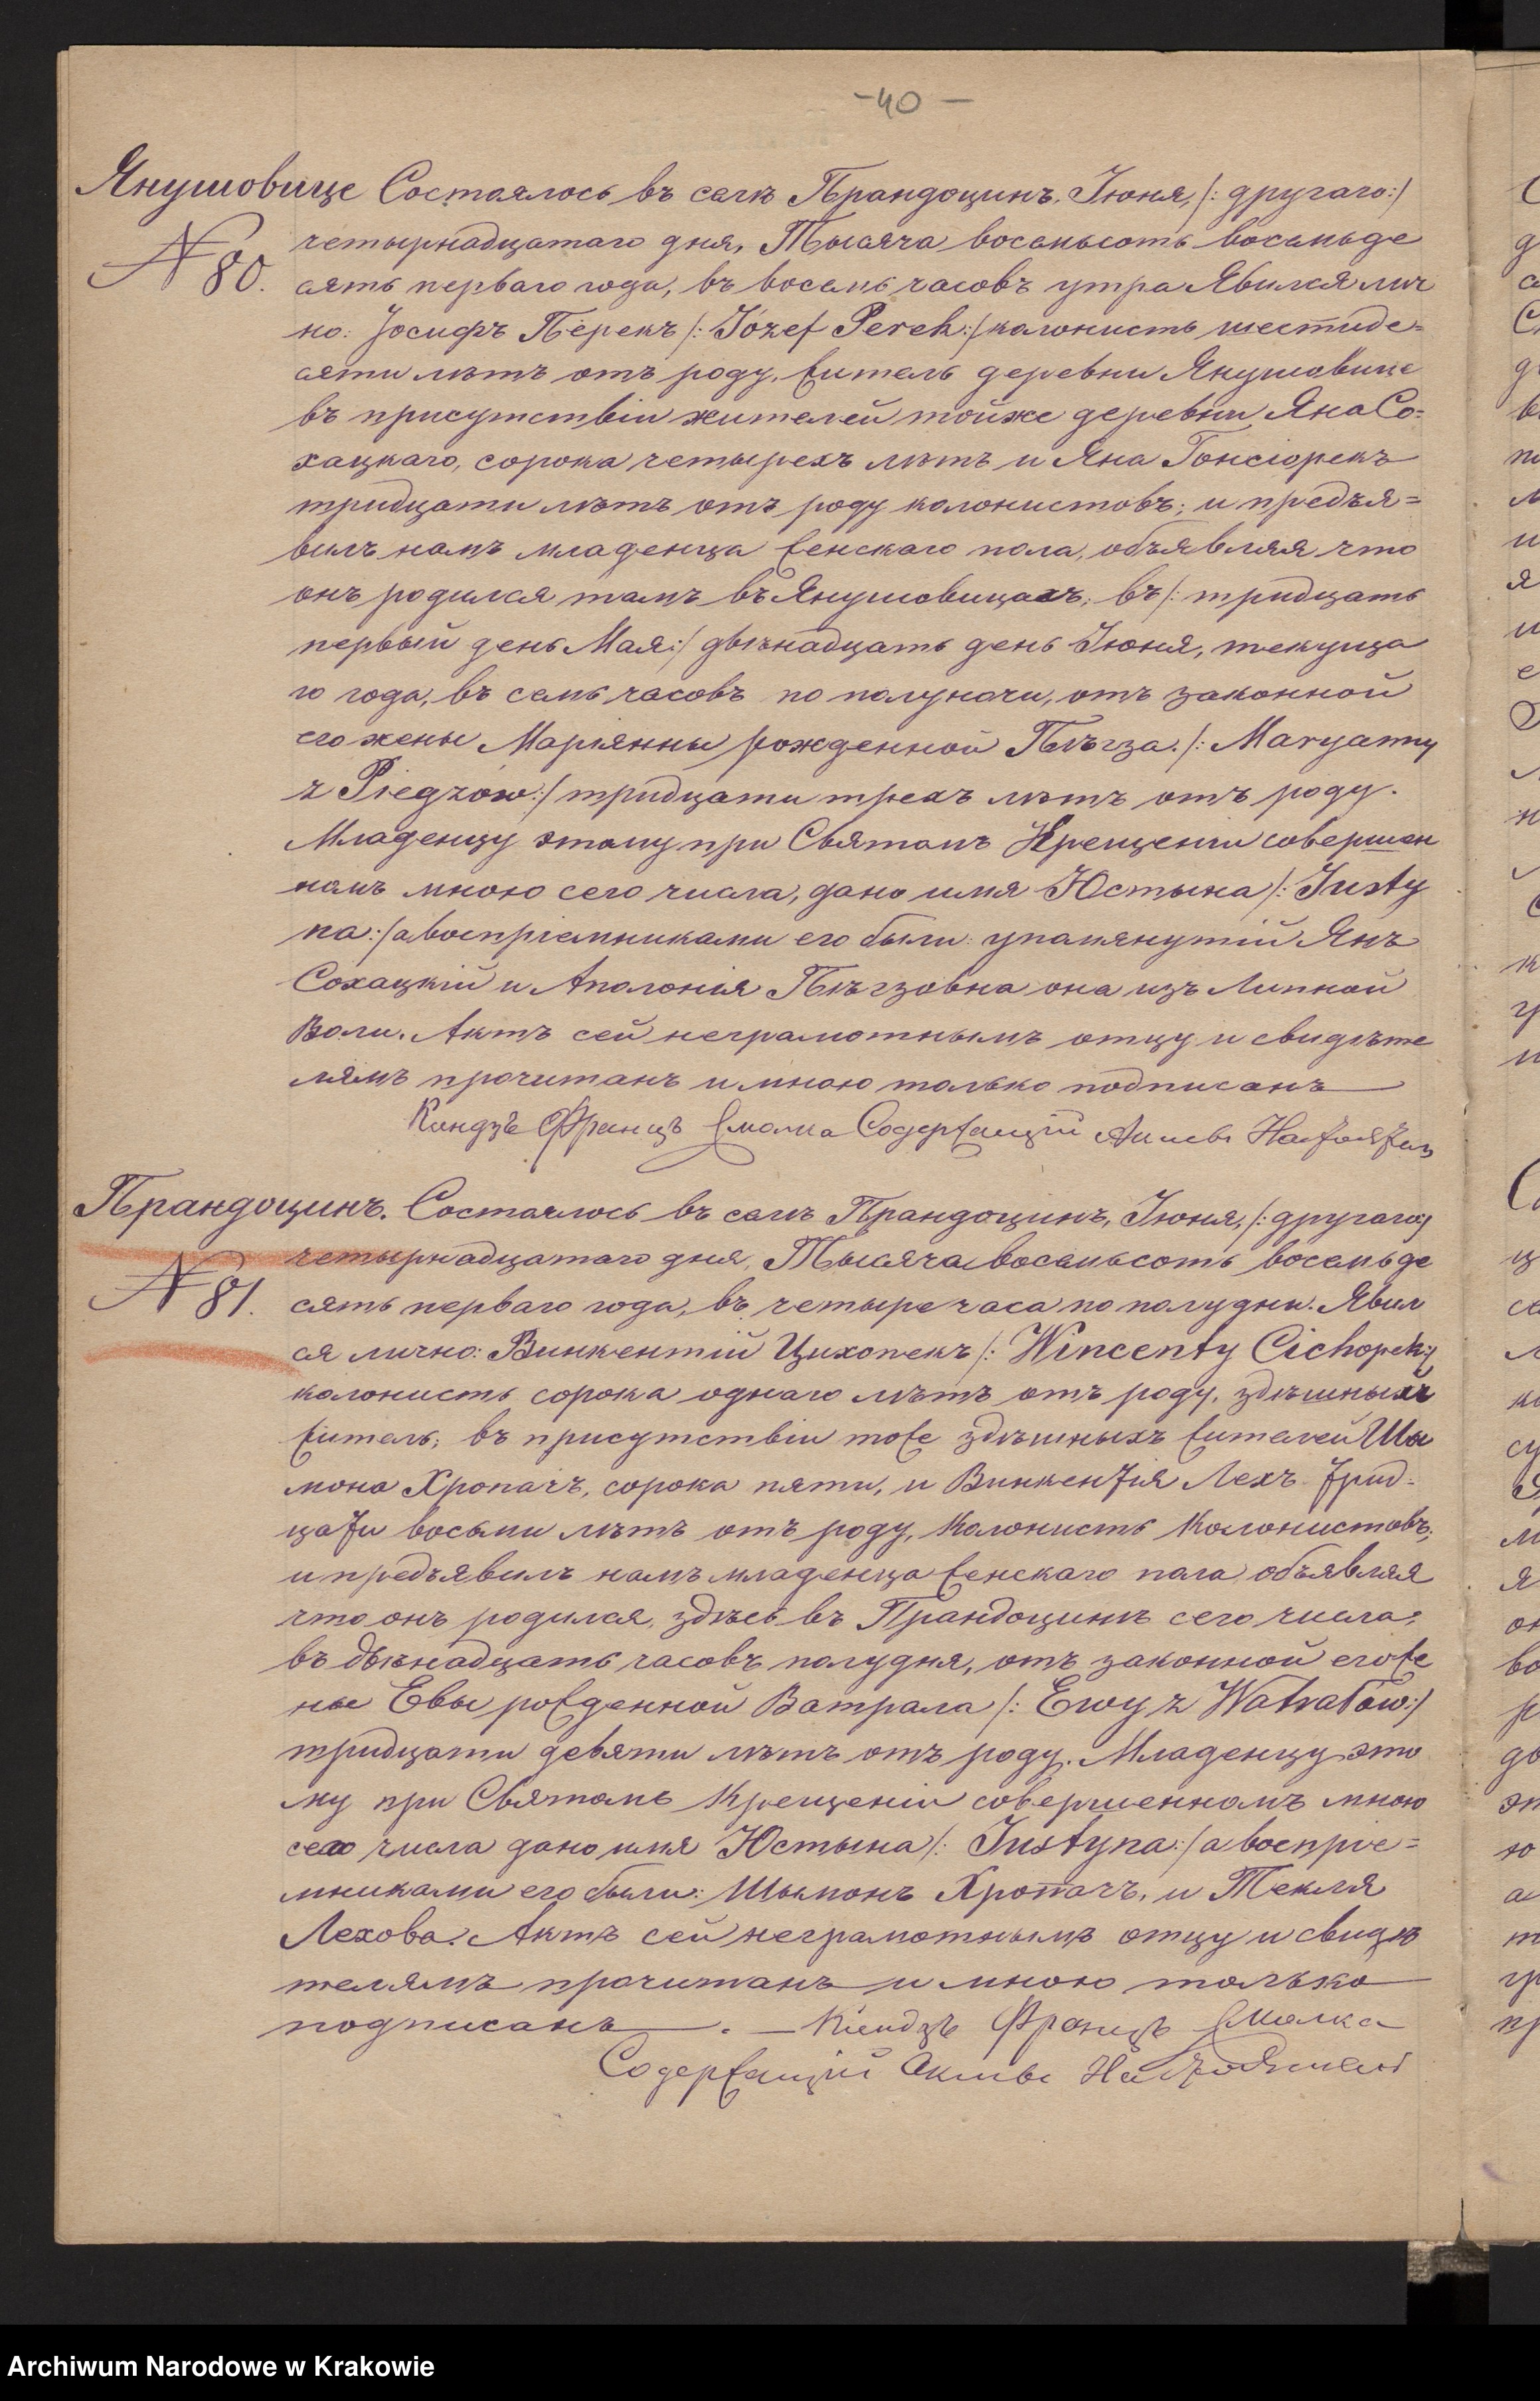 -40-
Янушовице Состоялось въ селѣ Прандоцинъ, Іюня, /: другаго :/
№ 80. четырнадцатаго дня, Тысяча восемьсотъ восемьде
сятъ перваго года, въ восемь часовъ утра Явился лич
но: Іосифъ Перекъ /: Józef Perek :/ колонистъ шестиде=
сяти лѣтъ отъ роду, житель деревни Янушовице
въ присутствіи жителей тойже деревни Яна Со=
хацкаго, сорока четырехъ лѣтъ и Яна Гонсіорекъ
тридцати лѣтъ отъ роду колонистовъ; и предъя=
вилъ намъ младенца женскаго пола, объявляя что
онъ родился тамъ въ Янушовицахъ, въ /: тридцать
первый день Мая :/ двѣнадцать день Іюня, текуща
го года, въ семь часовъ по полуночи, отъ законной
его жены Маріянны рожденной Пѣгза. /: Maryanny
z Piegzów :/ тридцати трехъ лѣтъ отъ роду.
Младенцу этому при Святомъ Крещеніи совершен
номъ мною сего числа, дано имя Юстына /: Justy
na :/ а воспріемниками его были: упомянутій Янъ
Сохацкій и Аполонія Пѣгзовна она изъ Липной
Воли. Актъ сей неграмотнымъ отцу и свидѣте
лямъ прочитанъ и мною только подписанъ
Ксндзъ Францъ Смолка Содержащій Акты
Прандоцинъ. Состоялось въ селѣ Прандоцинъ, Іюня, /: другаго :/
четырнадцатаго дня, Тысяча восемьсотъ восемьде
№ 81. сятъ перваго года, въ четыре часа по полудни. Явил
ся лично: Винкентій Цихопекъ /: Wincenty Cichopek :/
колонистъ сорока однаго лѣтъ отъ роду, здѣшныхъ
житель; въ присутствіи тоже здѣшныхъ жителей Шы
мона Хропачъ, сорока пяти, и Винкентія Лехъ трид=
цати восьми лѣтъ отъ роду, Колонистъ Колонистовъ;
и предъявилъ намъ младенца женскаго пола, объявляя
что онъ родился, здѣсь въ Прандоцинѣ сего числа,
въ двѣнадцать часовъ полудня, отъ законной его же
ны Евы рожденной Ватрала /: Ewy z Watrałów :/
тридцати девяти лѣтъ отъ роду. Младенцу это
му при Святомъ Крещеніи совершенномъ мною
сего числа дано имя Юстына /: Justyna :/ а воспріе=
мниками его были: Шымонъ Хропачъ, и Текля
Лехова. Актъ сей неграмотнымъ отцу и свидѣ
телямъ прочитанъ и мною только
подписанъ. — Ксендзъ Францъ Смолка
Содержащій Акты
Archiwum Narodowe w Krakowie